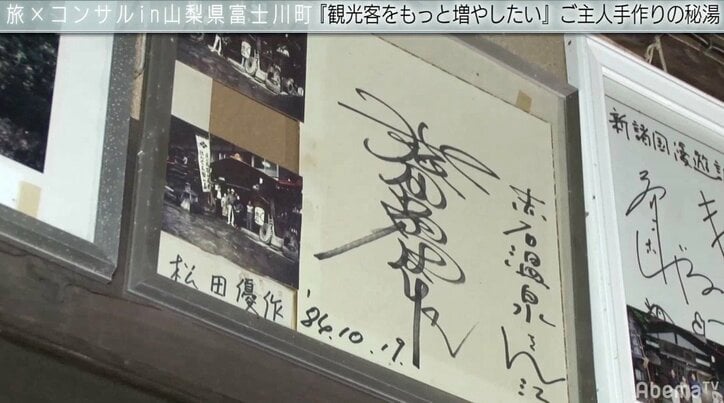 旅×コンサルin山梨県富士川町『観光客をもっと増やしたい』ご主人手作りの秘湯
赤石温泉さん江
松田優作
'84.10.19.
新諸国漫遊
AbemaTV